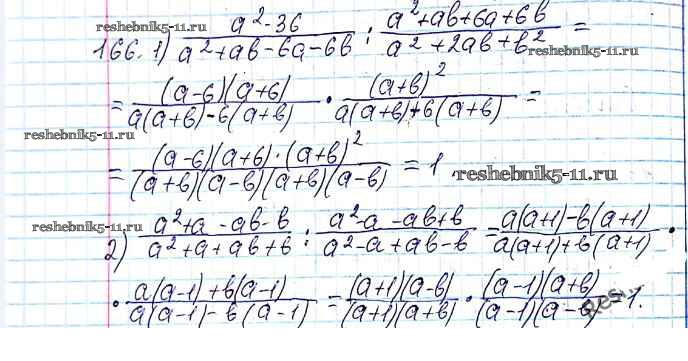 reshebnik5-11.ru
166. 1) (a²-36)/(a²+ab-6a-6b) : (a²+ab+6a+6b)/(a²+2ab+b²) =
reshebnik5-11.ru
= (a-6)(a+6)/(a(a+b)-6(a+b)) · (a+b)²/(a(a+b)+6(a+b)) =
reshebnik5-11.ru
= (a-6)(a+6)·(a+b)²/((a+b)(a-6)(a+b)(a-6)) = 1
reshebnik5-11.ru
reshebnik5-11.ru
2) (a²+a-ab-b)/(a²+a+ab+b) : (a²-a-ab+b)/(a²-a+ab-b) = (a(a+1)-b(a+1))/(a(a+1)+b(a+1)) ·
· (a(a-1)+b(a-1))/(a(a-1)-b(a-1)) = (a+1)(a-b)/((a+1)(a+b)) · (a-1)(a+b)/((a-1)(a-b)) = 1.